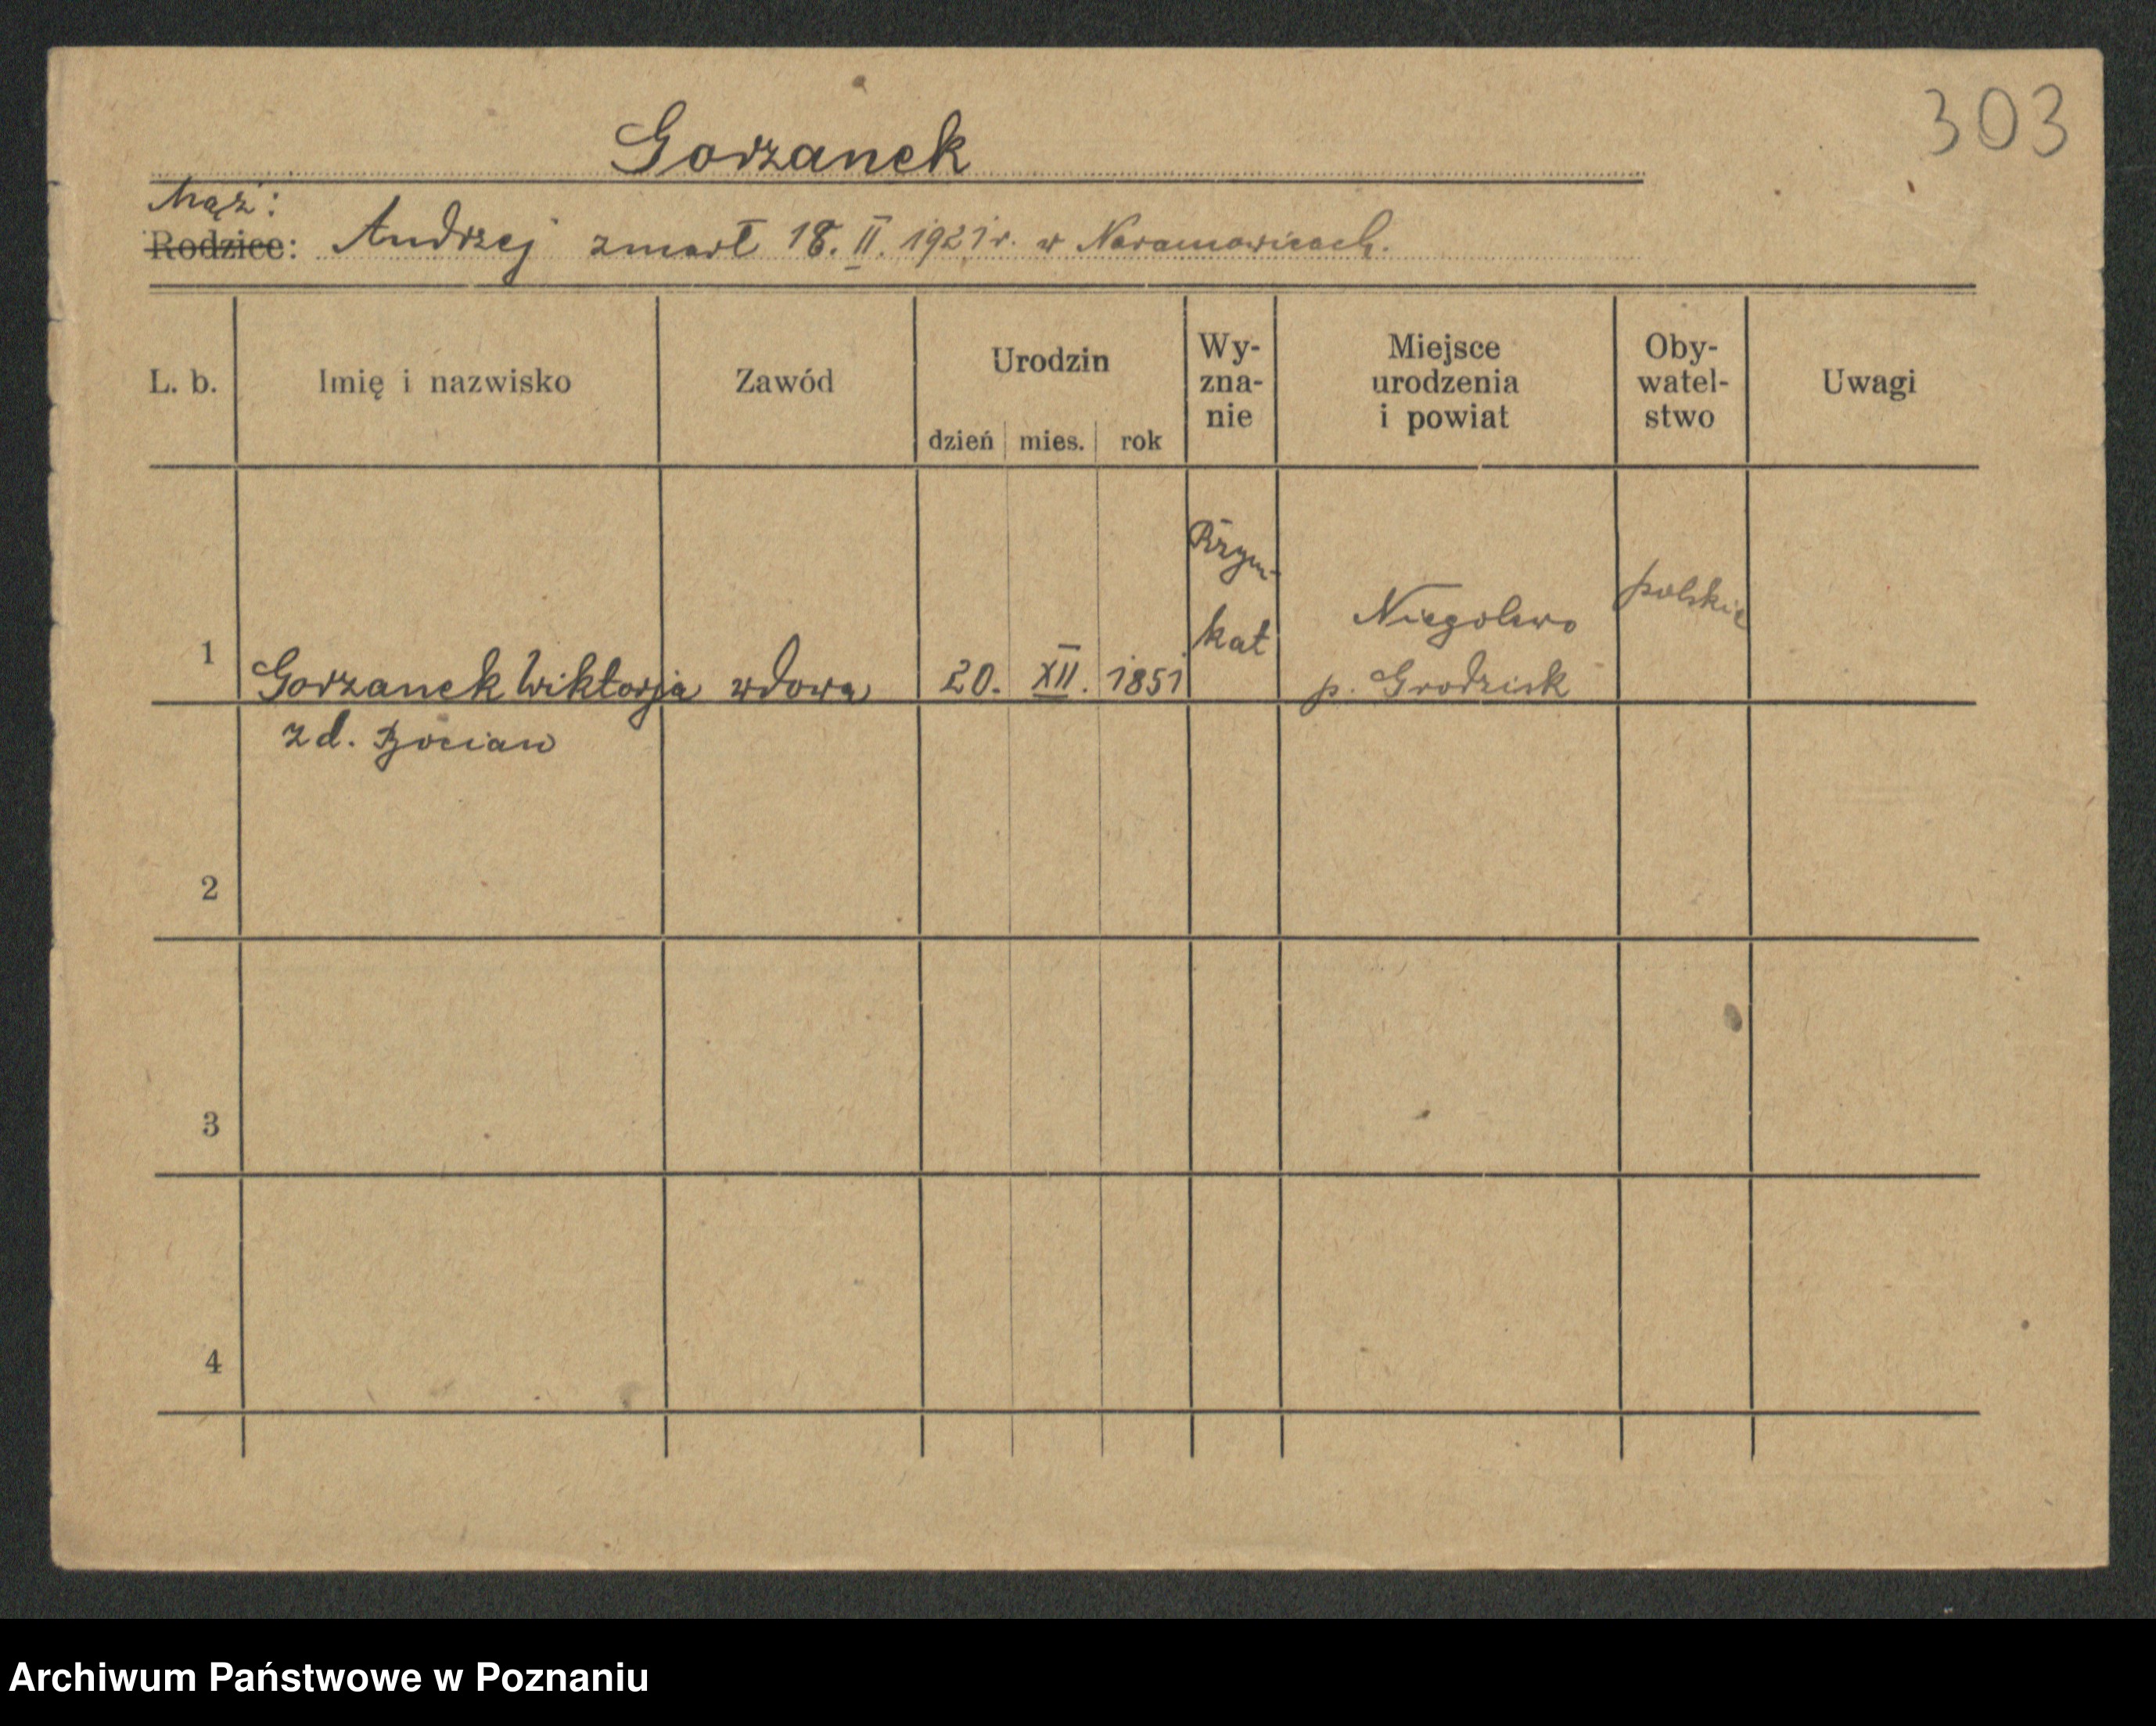 303
Gorzanek
Mąż:
Rodzice: Andrzej zmarł 18. II. 1921 r. w Naramowicach.
L. b. Imię i nazwisko Zawód Urodzin dzień mies. rok Wy-zna-nie Miejsce urodzenia i powiat Oby-watel-stwo Uwagi
1 Gorzanek Wiktorja wdowa 20. XII. 1851 Rzym-kat Niegolewo p. Grodzisk polskie
zd. Bocian
2
3
4
Archiwum Państwowe w Poznaniu